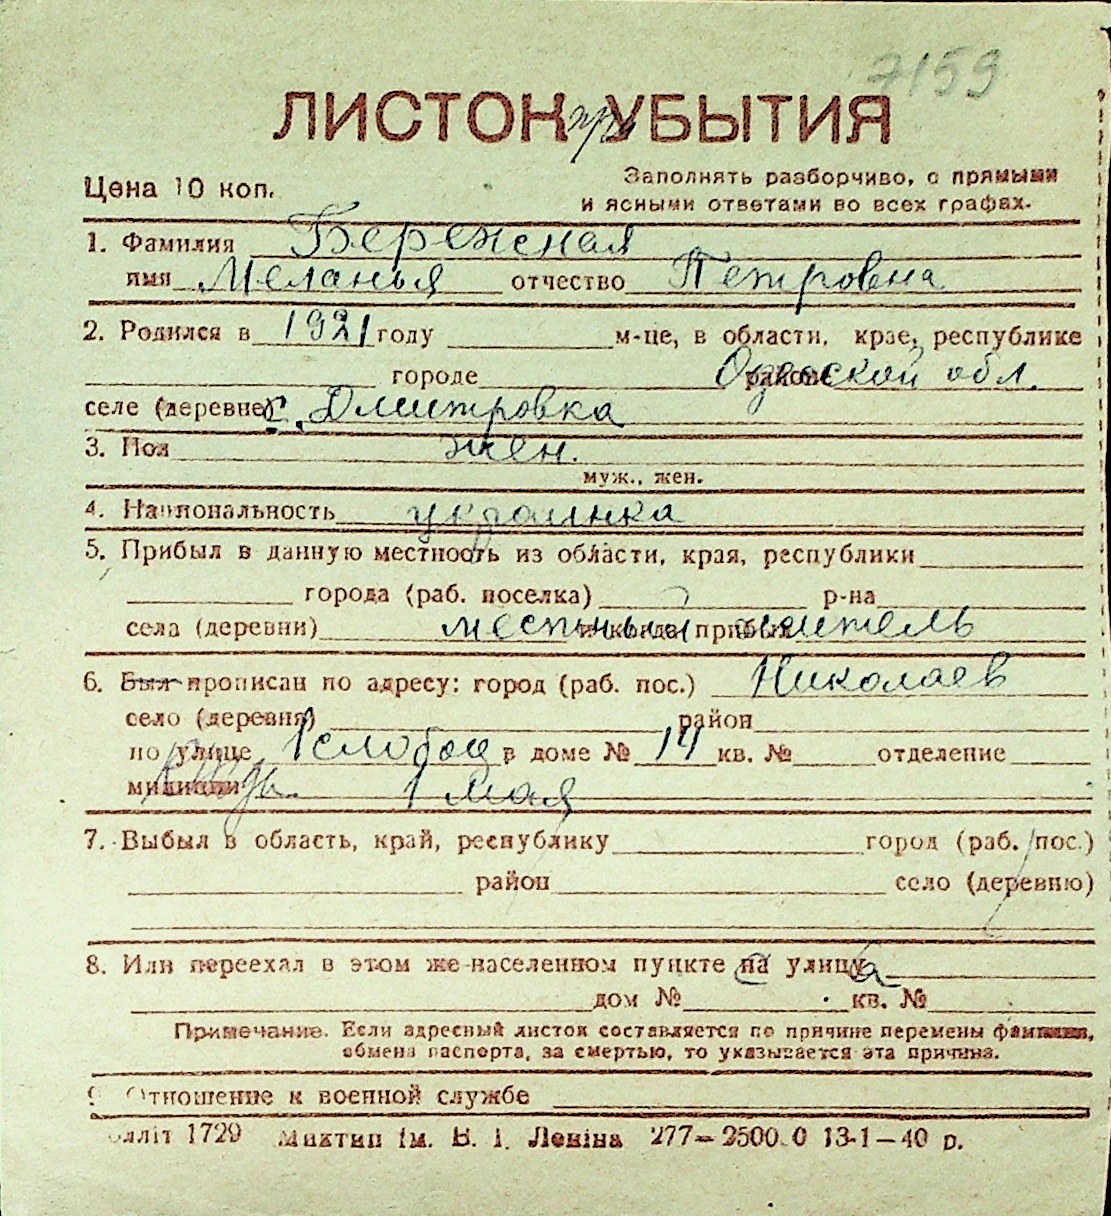 7159
ЛИСТОК при УБЫТИЯ
Цена 10 коп.
Заполнять разборчиво, с прямыми
и ясными ответами во всех графах.
1. Фамилия Бережная
имя Меланья отчество Петровна
2. Родился в 1921 году м-це, в области, крае, республике
городе районе Одесской обл.
селе (деревне) с. Дмитровка
3. Пол жен.
муж., жен.
4. Национальность украинка
5. Прибыл в данную местность из области, края, республики
города (раб. поселка) р-на
села (деревни) и когда прибыл местный житель
6. Был прописан по адресу: город (раб. пос.) Николаев
село (деревня) район
по улице 1 слобод в доме № 14 кв. № отделение
милиции 1 мая
7. Выбыл в область, край, республику город (раб. пос.)
район село (деревню)
8. Или переехал в этом же населенном пункте на улицу
дом № кв. №
Примечание. Если адресный листок составляется по причине перемены фамилии,
обмена паспорта, за смертью, то указывается эта причина.
9. Отношение к военной службе
1729 ім. В. І. Леніна 277—2500 0 13-1—40 р.